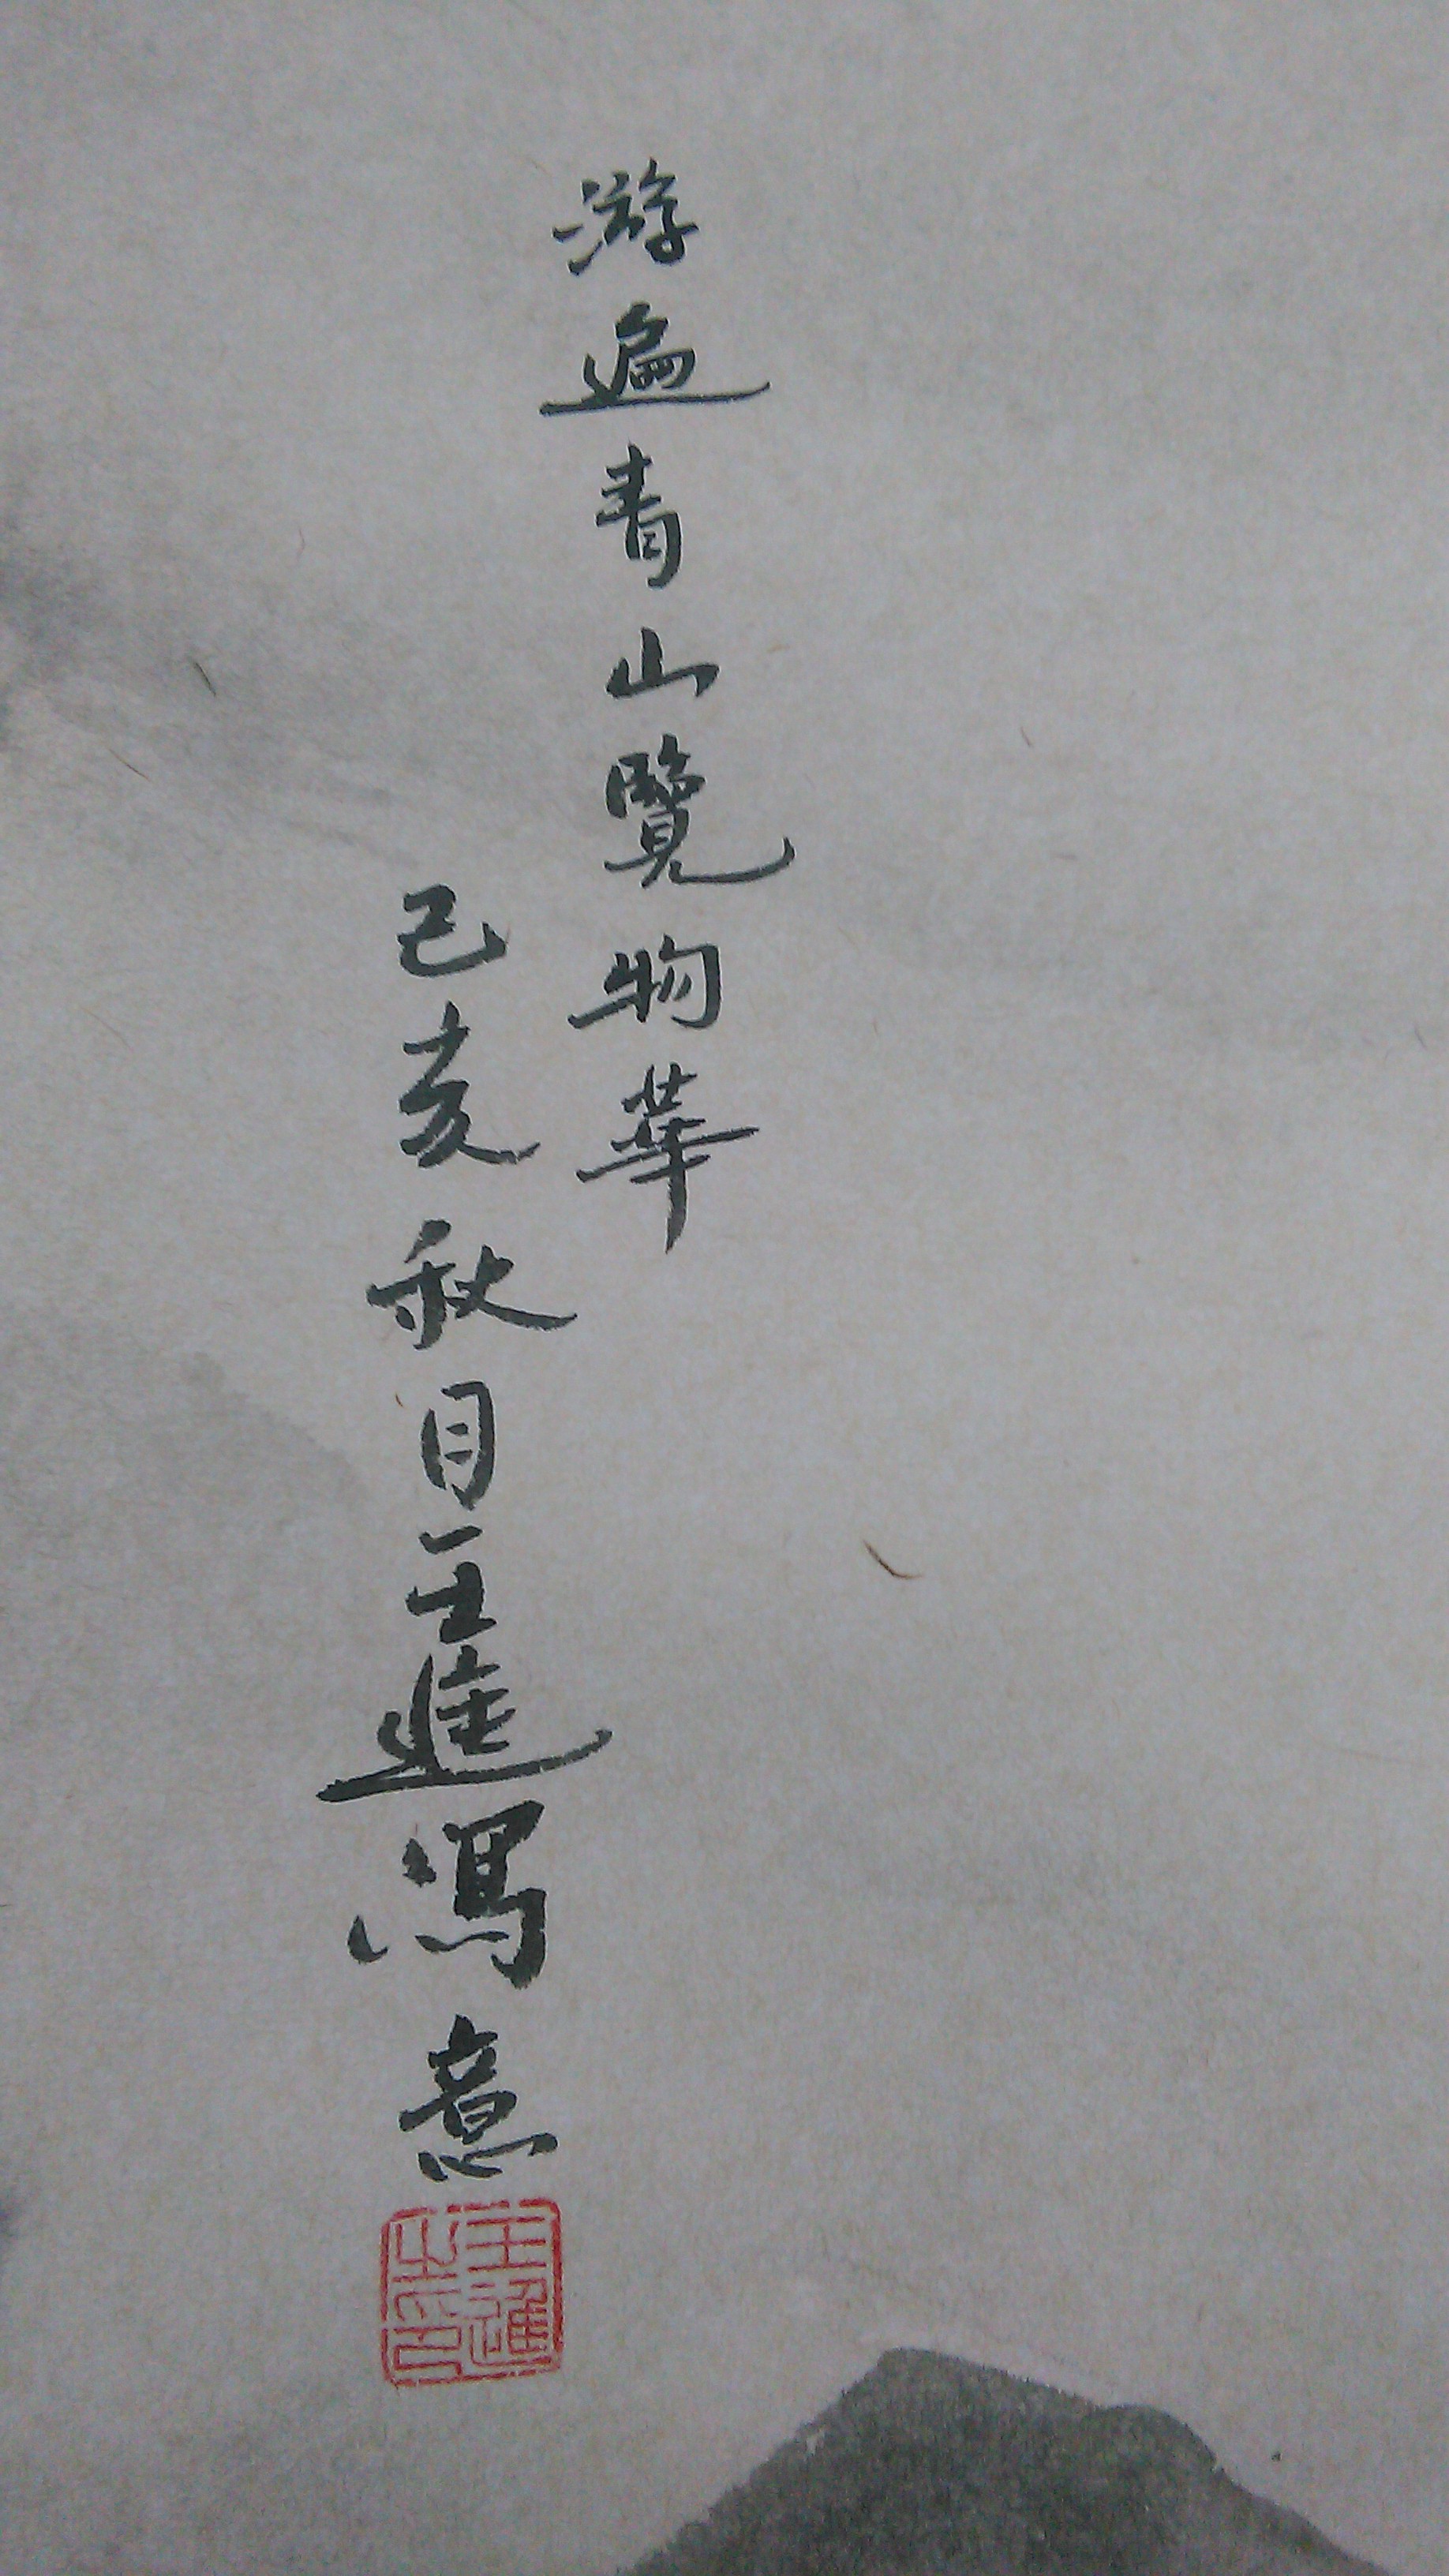 游遍青山覽物華
己亥秋月王進寫意
王進之印